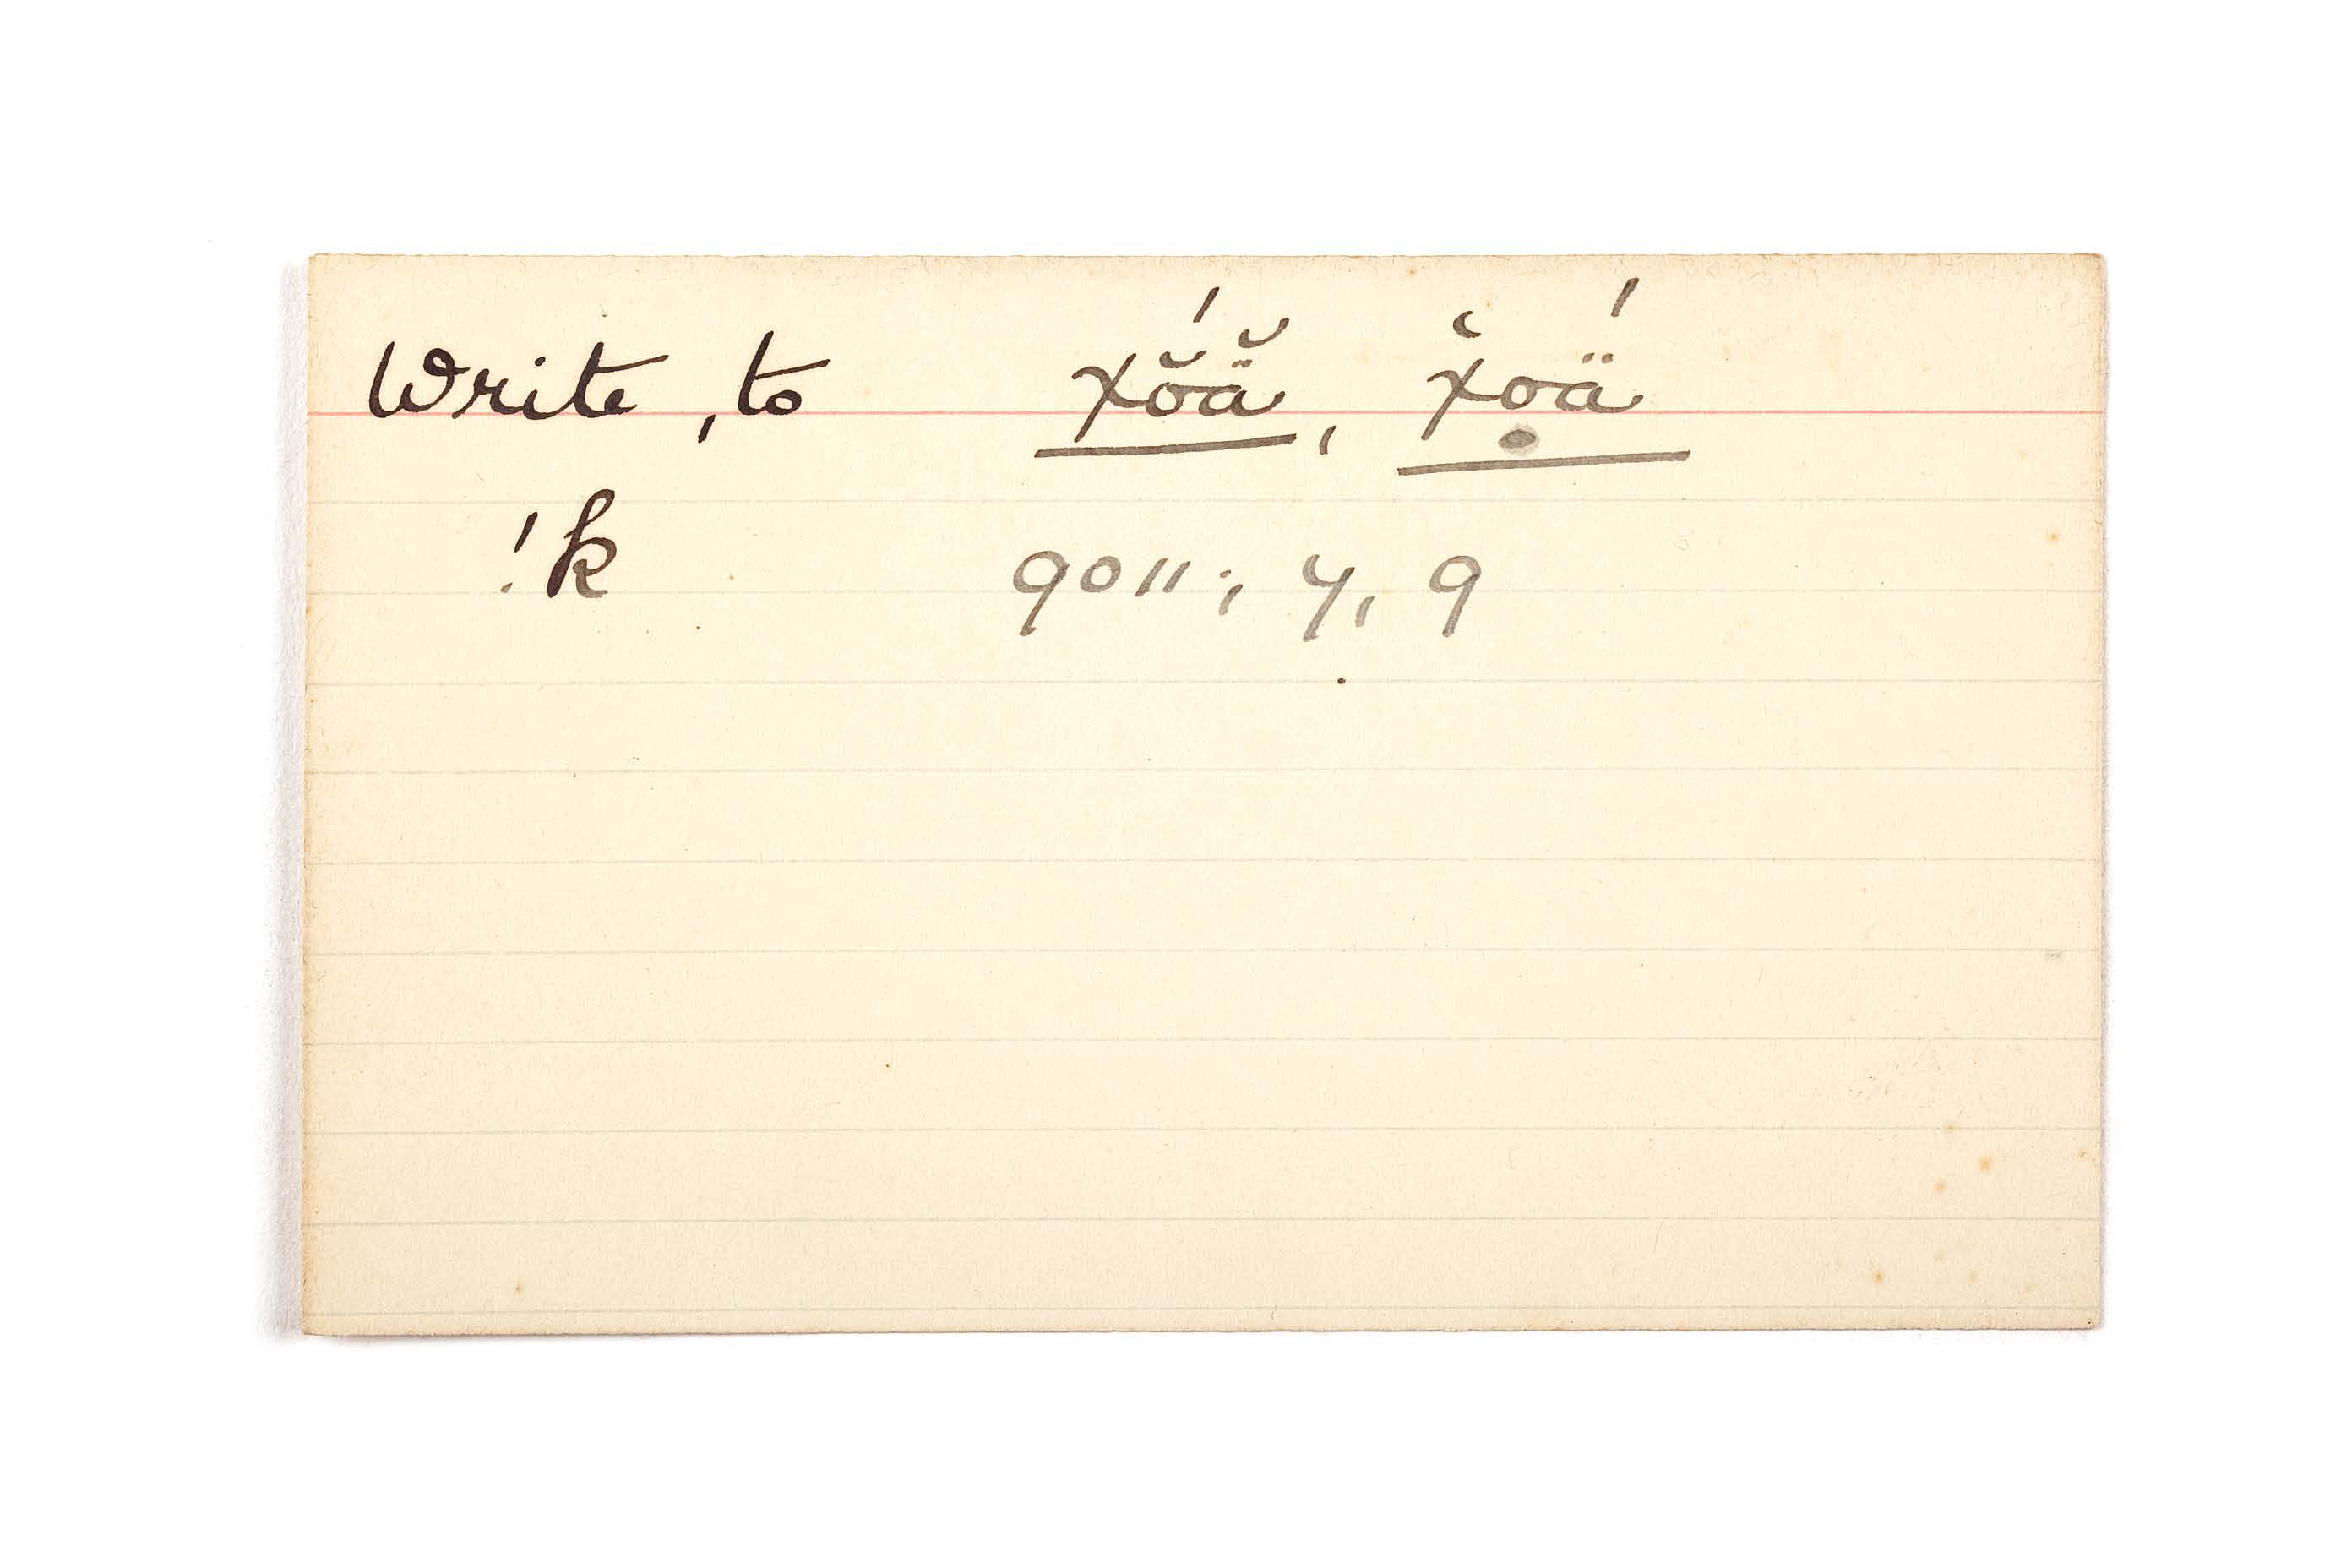 Write, to χŏ́ä̆, χ̔oä́
!k 9011; 7, 9